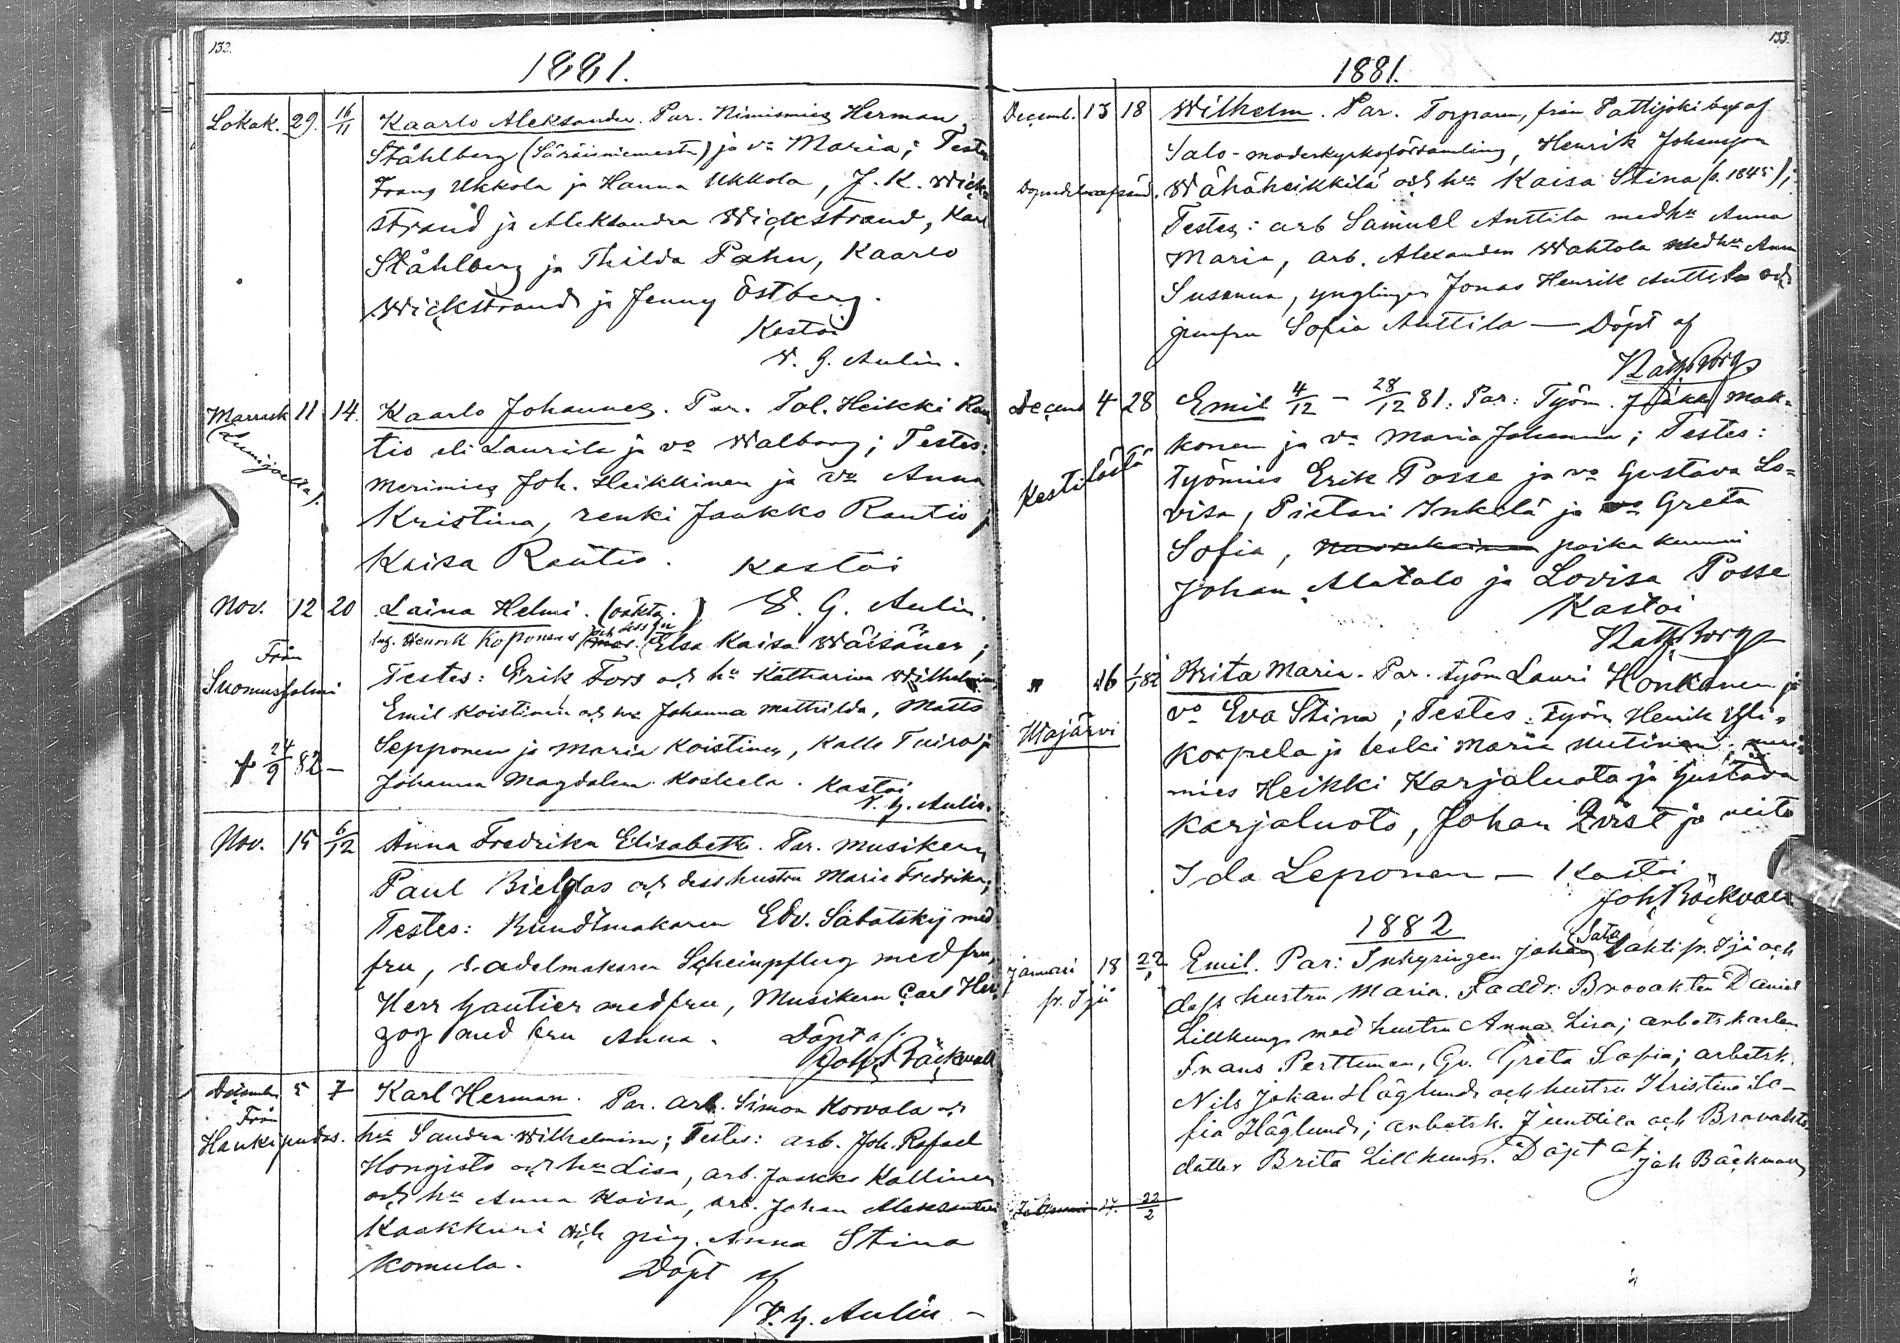 132.
1881.
Lokak. 29. 16/11 Kaarlo Aleksander. Par. Nimismies Herman
Ståhlberg (Säräisniemestä) ja vo Maria; Testes
Frans Ukkola ja Hanna Ukkola, J. K. Wick-
strand ja Aleksandra Wickstrand, Karl
Ståhlberg ja Thilda Pahn, Kaarlo
Wickstrand ja Jenny Östberg.
Kastoi
V. G. Aulin.
Marrask 11 14. Kaarlo Johannes. Par. Tal. Heikki Ran
(Lumijoelta). tio eli Laurila ja vo Walborg; Testes:
merimies Joh. Heikkinen ja vo Anna
Kristina, renki Jaakko Rautio j
Kaisa Rautio. Kastoi
Nov. 12 20 Laina Helmi. (oäkta.) V. G. Aulin.
Henrik Koponens Elsa Kaisa Wäisänen;
Från
Suomusjalmi
Testes: Erik Fors och hu Katharina Wilhelmina
Emil Koistinen och hu Johanna Mathilda, Matts
† 24/9 82 — Sepponen ja Maria Koistinen, Kalle Tuira ja
Johanna Magdalena Koskela. Kastoi
V. G. Aulin.
Nov. 15 6/12 Anna Fredrika Elisabeth. Par. Musikern
Paul Bielfas och dess hustru Maria Fredrika;
Testes: Bundtmakaren Edv. Sabatskÿ med
fru, sadelmakaren Scheinpflug med fru,
Herr Gautier med fru, Musikern Carl Her
zog med fru Anna. Döpt af:
Joh. Bäckvall
December 5 7 Karl Herman. Par. arb. Simon Korvala och
Från
Haukipudas. hu Sandra Wilhelmina; Testes: arb. Joh. Rafael
Hongisto och hu Lisa, arb. Jaakko Kallinen
och hu Anna Kaisa, arb. Johan
Kaakkuri och pig. Anna Stina
Komula. Döpt af
V. G. Aulin —
133.
1881.
Decemb. 13 18 Wilhelm. Par. Torparn, från Pattijoki by af
Salo-moderkyrkoförsamling, Henrik Johansson
Wähäheikkilä och hu Kaisa Stina (f. 1845);
Testes: arb Samuel Anttila med hu Anna
Maria, arb. Alexander Wahtola med hu Anna
Susanna, ynglingen Jonas Henrik Anttila och
jungfru Sofia Anttila — Döpt af
Decemb 4 28 Emil 4/12 – 28/12 81. Par: Työm. Jaakk Mak-
Kestilästä konen ja vo Maria Johanna; Testes:
Työmies Erik Posse ja vo Gustava Lo-
visa, Pietari Inkilä ja vo Greta
Sofia, poika kummi
Johan Alatalo ja Lovisa Posse
Kastoi
" 16 1/1 82 Brita Maria. Par. työm Lauri Honkanen ja
Wajärvi vo Eva Stina; Testes: Työm Henrik Yli-
korpela ja leski Maria Mutinen,
mies Heikki Karjaluoto ja Gustava
Karjaluoto, Johan Qvist ja neito
Ida Leponen — Kastoi
Joh Bäckvall
1882
Januari 18 22/1 Emil. Par: Inhysingen Johan Satalahti fr. Ijå och
fr. Ijå dess hustru Maria. Faddr: Brovakten Daniel
Lillkung med hustru Anna Lisa; arbetskarlen
Frans Perttunen, Gv. Greta Sofia; arbetsk.
Nils Johan Höglund och hustru Kristina So-
fia Höglund; arbetsk. Junttila och Brovakts
dotter Brita Lillkung. Döpt af
Joh Bäckvall
17. 22/2